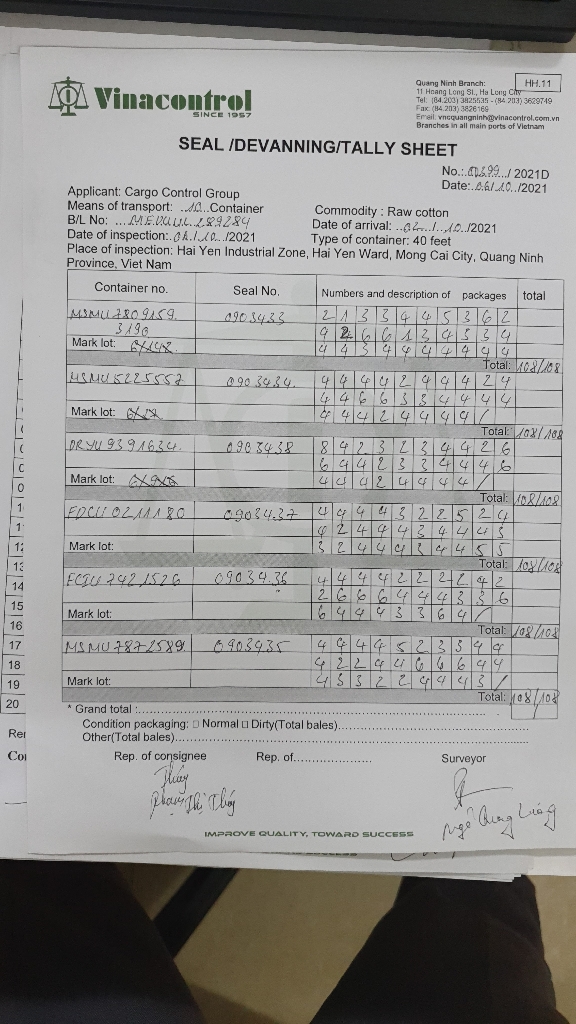 HH.11
Vinacontrol
SINCE 1957
Quang Ninh Branch:
11 Hoang Long St., Ha Long City
Tel: (84.203) 3825535 - (84.203) 3629749
Fax: (84.203) 3826169
Email: vncquangninh@vinacontrol.com.vn
Branches in all main ports of Vietnam
SEAL /DEVANNING/TALLY SHEET
No.: / 2021D
Date: 06/10../2021
Applicant: Cargo Control Group
Means of transport: ..10...Container
Commodity : Raw cotton
B/L No: ...MEDUUL289284
Date of arrival: ..02../...10../2021
Date of inspection: /10.../2021
Type of container: 40 feet
Place of inspection: Hai Yen Industrial Zone, Hai Yen Ward, Mong Cai City, Quang Ninh
Province, Viet Nam
Container no. Seal No. Numbers and description of packages total
MSMU7809159 0903433 2 1 3 3 4 4 5 3 6 2
3190 4 2 6 6 1 3 4 3 3 4
Mark lot: 4 4 3 4 4 4 4 4 4 4
Total: 108/108
MSMU5225557 0903434. 4 4 4 4 2 4 4 4 2 4
4 4 6 6 3 3 4 4 4 4
Mark lot: 4 4 4 2 4 4 4 4 /
Total: 108/108
DRYU9391634. 0903438 8 4 2 3 2 3 4 4 2 6
6 4 4 2 3 3 4 4 4 6
Mark lot: 4 4 4 2 4 4 4 4 /
Total: 108/108
FDCU0211180 0903437 4 4 4 4 3 2 2 5 2 4
4 2 4 4 4 3 4 4 4 3
Mark lot: 3 2 4 4 4 3 4 4 5 5
Total: 108/108
FCIU7421526 0903436 4 4 4 4 2 2 2 2 4 2
2 6 6 6 4 4 4 3 3 6
Mark lot: 6 4 4 4 3 3 6 4 /
Total: 108/108
MSMU7872589 0903435 4 4 4 4 5 2 3 3 4 4
4 2 2 4 4 6 6 6 4 4
Mark lot: 4 3 3 2 2 4 4 4 3 /
Total: 108/108
* Grand total :
Condition packaging: □ Normal □ Dirty(Total bales)
Other(Total bales)
Rep. of consignee Rep. of Surveyor
Thúy
Phạm Thị Thúy
Ngô Quang
IMPROVE QUALITY, TOWARD SUCCESS
10
11
12
13
14
15
16
17
18
19
20